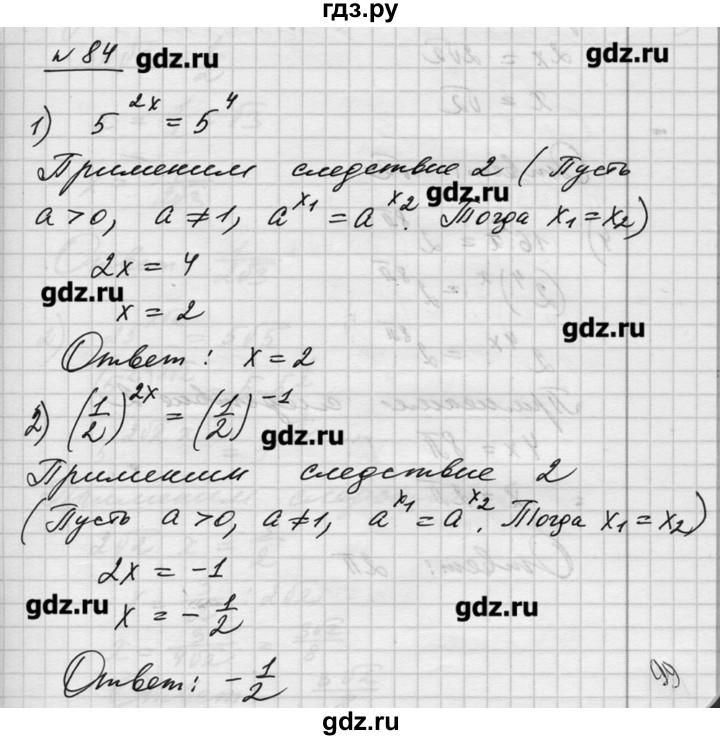 гдз.ру
№ 84 gdz.ru gdz.ru
1) 5^{2x} = 5^4
Применим следствие 2 (Пусть
gdz.ru
a > 0, a ≠ 1, a^{x_1} = a^{x_2}. Тогда x_1 = x_2)
2x = 4
gdz.ru
x = 2
gdz.ru
Ответ: x = 2
2) (1/2)^{2x} = (1/2)^{-1}
gdz.ru
Применим следствие 2
(Пусть a > 0, a ≠ 1, a^{x_1} = a^{x_2}. Тогда x_1 = x_2)
2x = -1
gdz.ru gdz.ru
x = -1/2
Ответ: -1/2
99
gdz.ru